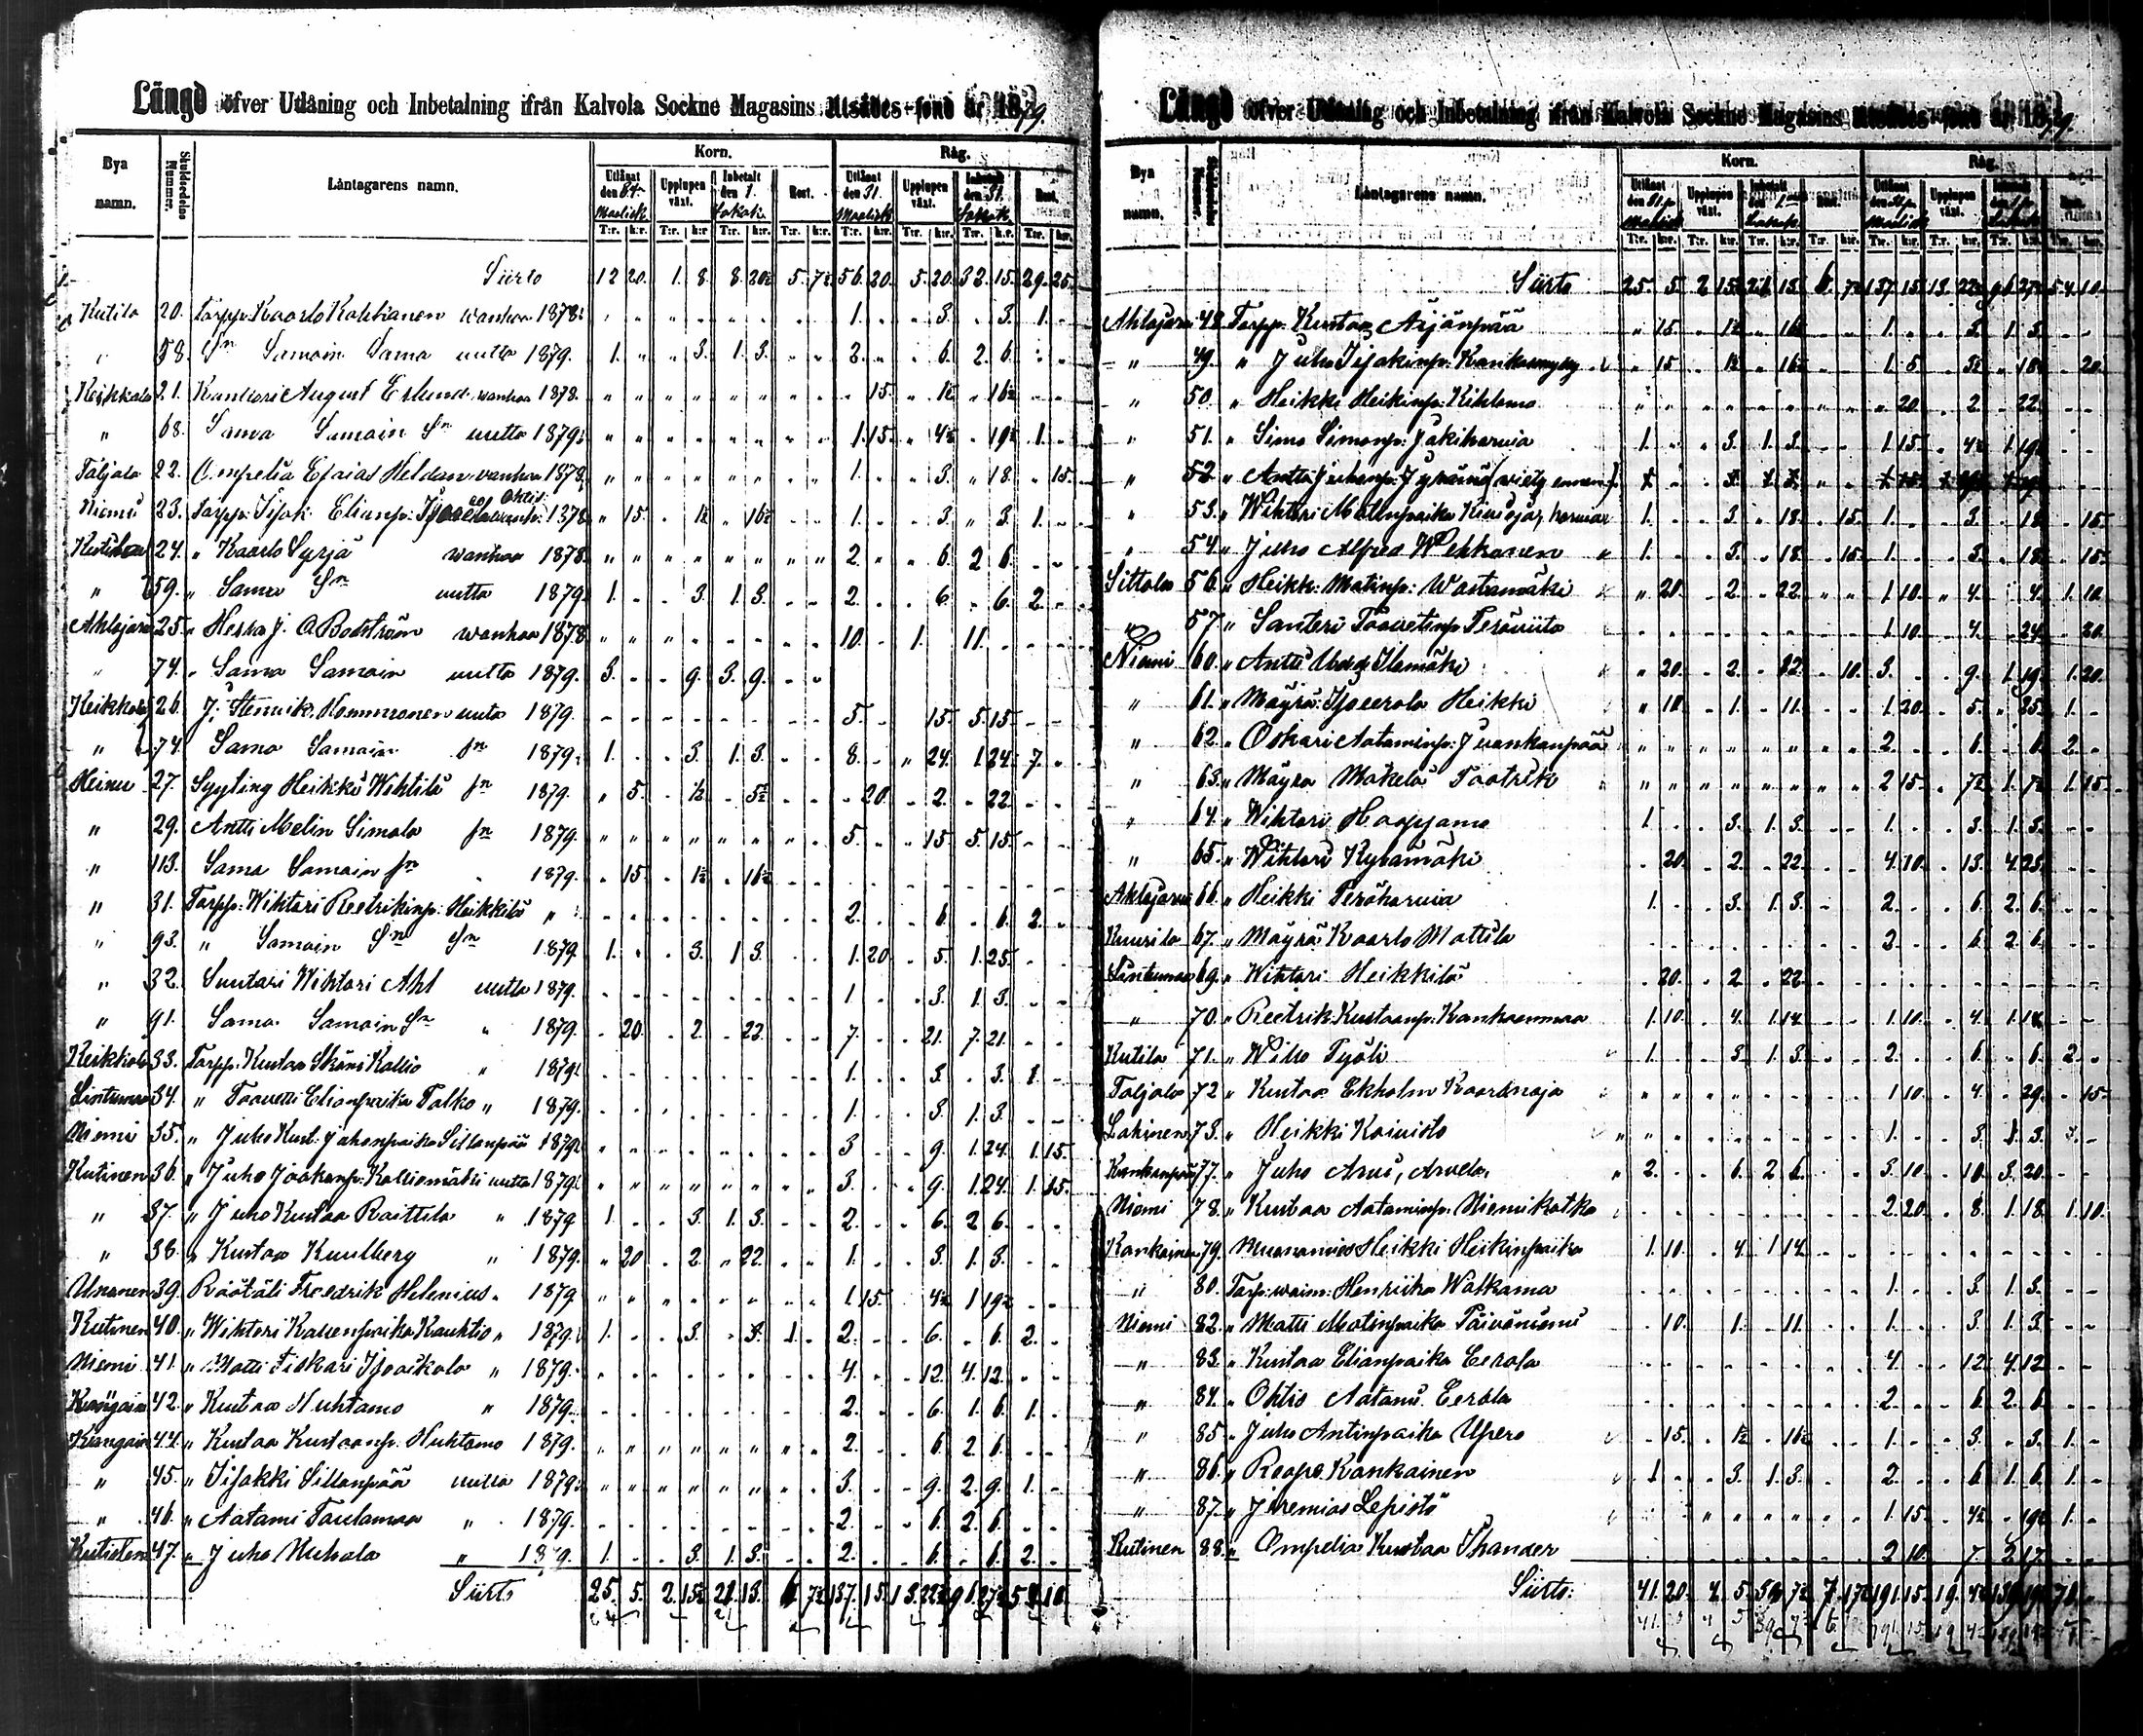 Längd öfver Utlåning och Inbetalning ifrån Kalvola Sockne Magasins Utsädes-fond år 1879.
Bya namn. Skuldsedelns Nummer. Låntagarens namn. Korn. Råg.
Utlånat den 31. Maalisk. Upplupen växt. Inbetalt den 1. Lokak. Rest. Utlånat den 31. Maalisk. Upplupen växt. Inbetalt den 31. Lokak. Rest.
T:r. k:r. T:r. k:r. T:r. k:r. T:r. k:r. T:r. k:r. T:r. k:r. T:r. k:r. T:r. k:r.
Siirto 12 20. 1. 8. 8. 20½ 5. 7½ 56. 20. 5. 20. 32. 15. 29. 25.
Kutila 20. Torpp. Kaarlo wanhaa 1878. 1. 3. 3. 1.
" 58. Sn Samain Sama uutta 1879. 1. 3. 1. 3. 2. 6. 2. 6.
Keikkala 21. Kanttori August Eslund wanhaa 1878. 15. 1½ 16½
" 68. Sama Samain Sn uutta 1879. 1. 15. 4½ 19½ 1.
Taljala 22. Ompelia Esaias Heldan wanhaa 1878. 1. 3. 18. 15.
Niemi 23. Torpp. Iisak Elianp. wanh. 1878. 15. 1½ 16½ 1. 3. 3. 1.
24. " Kaarlo Syrjä wanhaa 1878. 2. 6. 2. 6.
" 59. " Sama Sn uutta 1879. 1. 3. 1. 3. 2. 6. 6. 2.
Ahlajärvi 25. " Herra J. A. Boström wanhaa 1878. 10. 1. 11.
" 74. " Sama Samain uutta 1879. 3. 9. 3. 9.
Keikkala 26. J. Stenvik Hommronen uuta 1879. 5. 15. 5. 15.
" 74. Sama Samain sn 1879. 1. 3. 1. 3. 8. 24. 1. 24. 7.
Heinu 27. Syyting Heikki Wihtilä sn 1879. 5. ½ 5½ 20. 2. 22.
" 29. Antti Melin Simola sn 1879. 5. 15. 5. 15.
" 113. Sama Samain sn 1879. 15. 1½ 16½
" 31. Torpp. Wihtori Reetrikinp. Heikkilä " 2. 6. 6. 2.
" 93. " Samain Sn Sn 1879. 1. 3. 1. 3. 1. 20. 5. 1. 25.
" 32. Suutari Wihtori Ahl uutta 1879. 1. 3. 1. 3.
" 91. Sama Samain Sn " 1879. 20. 2. 22. 7. 21. 7. 21.
Keikkala 33. Torpp. Kustaa Skäni Kallio " 1879. 1. 3. 3. 1.
Lintumaa 34. " Taavetti Elianpoika Talko " 1879. 1. 3. 1. 3.
Niemi 35. " Juho Kust. Juhonpoika Sillanpää 1879. 3 9. 1. 24. 1. 15.
Kutinen 36. " Juho Jaakonp. Kalliomäki uutta 1879. 3. 9. 1. 24. 1. 15.
" 37. " Juho Kustaa Raittila " 1879 1. 3. 1. 3. 2. 6. 2 6.
" 38. " Kustaa Kuulberg " 1879. 20 2. 22. 1. 3. 1. 3.
39. Räätäli Freedrik Helenius " 1879 1. 15. 4½ 1 19½
Kutinen 40. " Wihtori Kallenpoika Kauhtio " 1879. 1. 3. 3. 1. 2. 6. 6. 2.
Niemi 41. " Matti Fiskari Ijoaikala " 1879. 4. 12. 4. 12.
42. " Kustaa Huhtamo " 1879. 2. 6. 1. 6. 1.
44. " Kustaa Kustaanp. Huhtamo 1879. 2. 6. 2 6.
" 45. " Iisakki Sillanpää uutta 1879. 3. 9. 2. 9. 1.
" 46. " Aatami Taulamaa " 1879. 2. 6. 2. 6.
47. " Juho Nuhala " 1879. 1. 3. 1. 3. 2. 6. 6. 2.
Siirto 25. 5. 2. 15½ 21. 13. 6. 7½ 137. 15. 13. 22½ 96. 27½ 54. 10.
Längd öfver Utlåning och Inbetalning ifrån Kalvola Sockne Magasins Utsädes-fond år 1879.
Bya namn. Låntagarens namn. Korn. Råg.
Utlånat den 31. Maalisk. Upplupen växt. Inbetalt den 1. Lokak. Rest. Utlånat den 31. Maalisk. Upplupen växt. Rest.
T:r. k:r. T:r. k:r. T:r. k:r. T:r. k:r. T:r. k:r. T:r. k:r. T:r. k:r. T:r. k:r.
Siirto 25. 5. 2 15½ 21. 13. 6. 7½ 137. 15. 13. 22½ 96. 27½ 54. 10.
Ahlajärvi 48. Torpp. Kustaa Äijänpää 15. 1½ 16½ 1. 3. 1. 3.
" 49. " Juho Iisakinp. 15 1½ 16½ 1. 5. 3½ 18½ 20.
" 50. " Heikki Heikinp. Kihlamo 20. 2. 22.
" 51. " Simo Simonp. Jakiharvia 1. 3. 1. 3. 1. 15. 4½ 1. 19½
" 52. " Antti Juhonp.
" 53. " Wihtori Matinpoika 1. 3. 18. 15. 1. 3. 18. 15.
" 54. " Juho Alfred Wekkanen 1. 3. 18. 15. 1. 3. 18. 15.
Sittala 56. " Heikki Matinp. Wastamäki 20. 2. 22. 1. 10. 4. 4. 1. 10.
" 57. " Santeri Taavetinp. Teräviita 1. 10. 4. 24. 20.
Niemi 60. " Antti Ilamäki 20. 2. 12. 10. 3. 9. 1. 19. 1. 20.
" 61. " Mäyrä Heikki 10. 1. 11. 1. 20. 5. 25. 1.
" 62. " Oskari Aataminp. Juvankanpää 2. 6. 6. 2.
" 63. " Mäyrä Mäkelä Taatrik 2 15. 7½ 1. 7½ 1. 15.
" 64. " Wihtori Haapjamo 1. 3. 1. 3. 1. 3. 1. 3.
" 65. " Wihtori Kylämäki 20. 2. 22. 4. 10. 13. 4. 23.
Ahlajärvi 66. " Heikki Peräharvia 1. 3. 1. 3. 2. 6. 2. 6.
Kuurila 67. " Mäyrä Kaarlo Mattila 2. 6. 2. 6.
Lintumaa 69. " Wihtori Heikkilä 20. 2. 22.
" 70. " Reetrik Kustaanp. Kankaanmaa 1. 10. 4. 1. 14. 1. 10. 4. 1. 14.
Kutila 71. " Wilho Työli 1. 3. 1. 3. 2. 6. 6. 2.
Taljala 72 " Kustaa Ekholm Kaarlnoja 1 10. 4. 29. 15.
Lahinen 73. " Heikki Koivisto 1. 3. 1. 3.
77. " Juho Arvi, Arvela 2. 6. 2 6. 3. 10. 10 3. 20.
Niemi 78. " Kustaa Aataminp. Niemikatko 2. 20. 8. 1. 18. 1. 10.
Kankainen 79. Muonamies Heikki Heikinpoika 1. 10. 4. 1. 14.
" 80. Torp. waim. Henriika Walkama 1. 3. 1. 3.
Niemi 82. " Matti Matinpoika Päiväniemi 10. 1. 11. 1. 3. 1. 3.
" 83. " Kustaa Elianpoika Eerola 4. 12. 4. 12
" 84. " Ohtis Aatami Eerola 2. 6 2 6.
" 85. " Juho Antinpoika Upero 15. 1½ 16½ 1. 3. 3. 1.
" 86. " Roope Kankainen 1. 3. 1. 3. 2. 6 1. 6. 1.
" 87. " Jeremias Lepistö 1. 15. 4½ 19½ 1.
Kutinen 88. " Ompelia Kustaa Thander 2 10. 7. 2 17.
Siirto: 41. 20. 4. 5. 39. 7½ 7. 17½ 191. 15. 19. 4½ 139. 19½ 71.